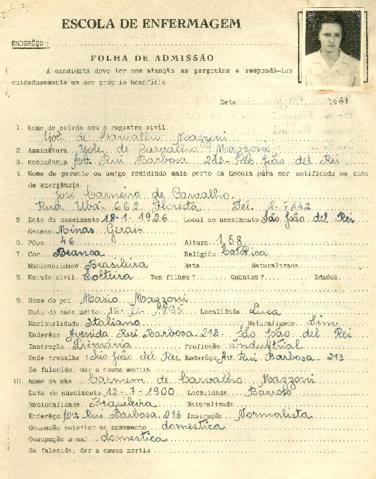 ESCOLA DE ENFERMAGEM
ENDERÊÇO:
FOLHA DE ADMISSÃO
A candidata deve ler com atenção as perguntas e respondê-las
cuidadosamente em seu próprio benefício.
Data
1. Nome de acôrdo com o registro civil.
de Carvalho Mazzoni
2. Assinatura de Carvalho Mazzoni
3. Residência Av. Rui Barbosa 213 - São João del Rei
4. Nome do parente ou amigo residindo mais perto da Escola para ser notificado em caso
de emergência.
José Carneiro de Carvalho.
Rua Ubá. 662. Floresta Tel. 2-7342
5. Data do nascimento 18-1-1926. Local do nascimento São João del Rei
Estado Minas Gerais
6. Pêso: 46 Altura 1,58
7. Cor. Branca Religião Católica
Nacionalidade Brasileira Nata Naturalizada
8. Estado civil Solteira Tem filhos? Quantos? Idades.
9. Nome do pai Mario Mazzoni
Data do nascimento Localidade Luca
Nacionalidade Italiana Naturalizado Sim
Enderêço Avenida Rui Barbosa 213 - São João del Rei
Instrução Primária Profissão Industrial
Onde trabalha São João del Rei Enderêço Av. Rui Barbosa. 213
Se falecido, dar a causa mortis
10. Nome da mãe Carmem de Carvalho Mazzoni
Data do nascimento 12-7-1900 Localidade Barroso
Nacionalidade Brasileira Naturalizada
Enderêço Av. Rui Barbosa. 213 Instrução Normalista
Ocupação anterior ao casamento domestica
Ocupação atual domestica
Se falecida, dar a causa mortis